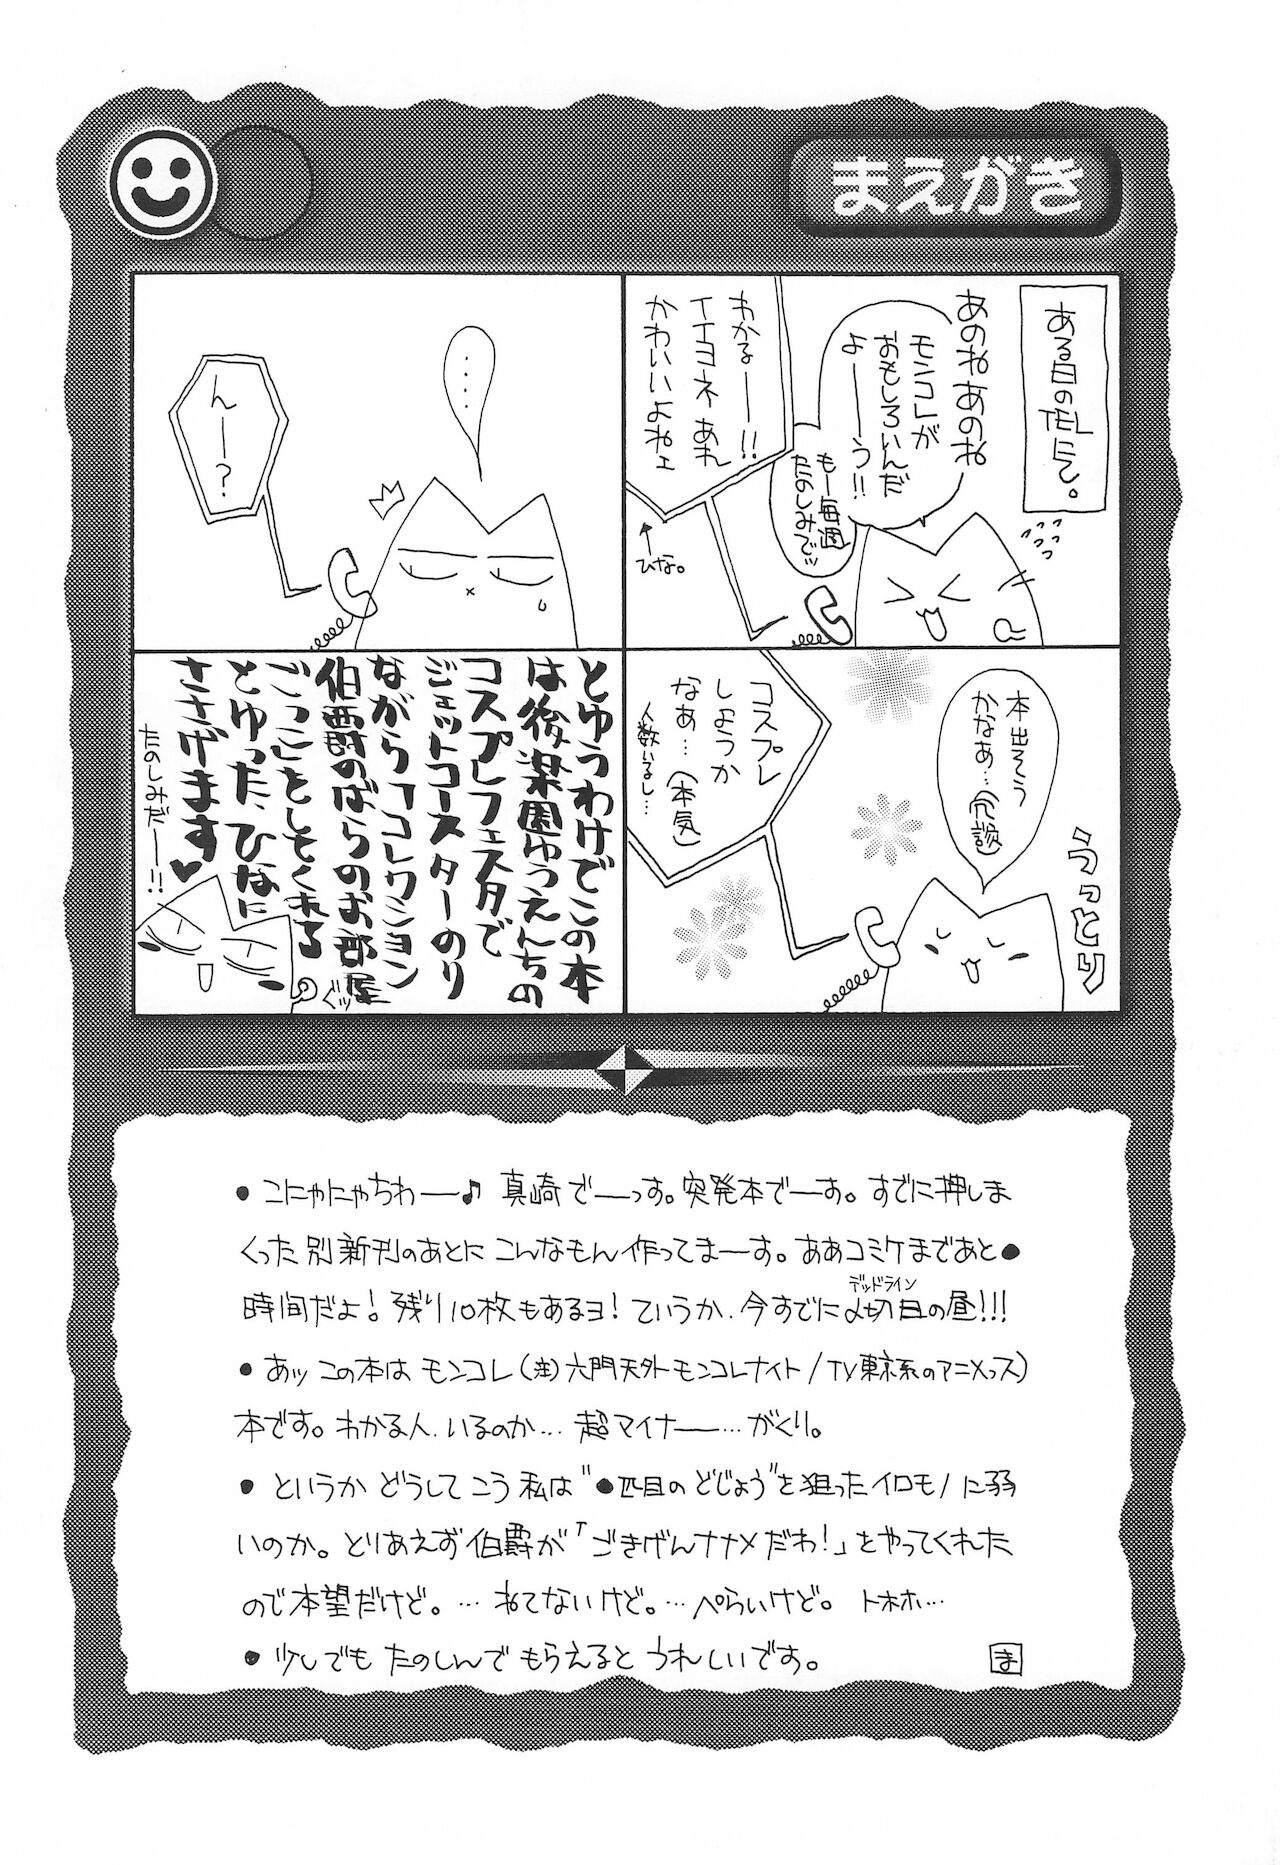 まえがき
ある日のTELにて。
あのねあのね
モンコレが
おもしろいんだ
よーーう!!
もー毎週
たのしみでッ
わかるーー!!
イイヨネあれ
かわいいよねェ
ひな。
‥‥
んー?
本出そう
かなぁ…(冗談)
うっとり
コスプレ
しようか
なぁ…(本気)
人数いるし…
とゆうわけでこの本
は後楽園ゆうえんちの
コスプレフェスタで
ジェットコースターのり
ながら「コレクション
伯爵のばらのお部屋
ごっこ」をしてくれる
とゆった、ひなに
ささげます♥
たのしみだーー!!
ぐッ
●こにゃにゃちわー♪ 真崎でーっす。突発本でーす。すでに押しま
くった別新刊のあとにこんなもん作ってまーす。ああコミケまであと●
時間だよ!残り10枚もあるヨ!ていうか、今すでに〆切日の昼!!!
デッドライン
●あッ この本は モンコレ(注)六門天外モンコレナイト/TV東京系のアニメっス)
本です。わかる人、いるのか…超マイナー…がくり。
●というか どうして こう 私は"●匹目のどじょう"を狙ったイロモノに弱
いのか。とりあえず伯爵が「ごきげんナナメだわ!」をやってくれた
ので本望だけど。…ねてないけど。…ぺらいけど。トホホ…
●少しでも たのしんで もらえると うれしいです。 ま